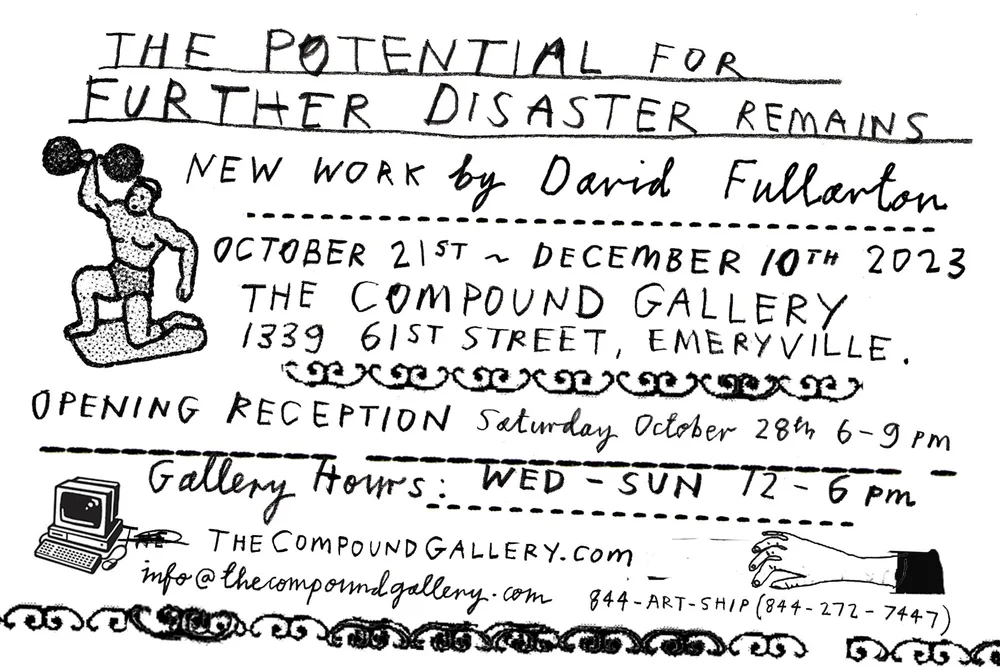 THE POTENTIAL FOR
FURTHER DISASTER REMAINS
NEW WORK by David Fullarton
OCTOBER 21ST ~ DECEMBER 10TH 2023
THE COMPOUND GALLERY
1339 61ST STREET, EMERYVILLE.
OPENING RECEPTION Saturday October 28th 6-9 pm
Gallery Hours: WED - SUN 12 - 6 pm
THECOMPOUNDGALLERY.com
info@thecompoundgallery.com
844-ART-SHIP (844-272-7447)